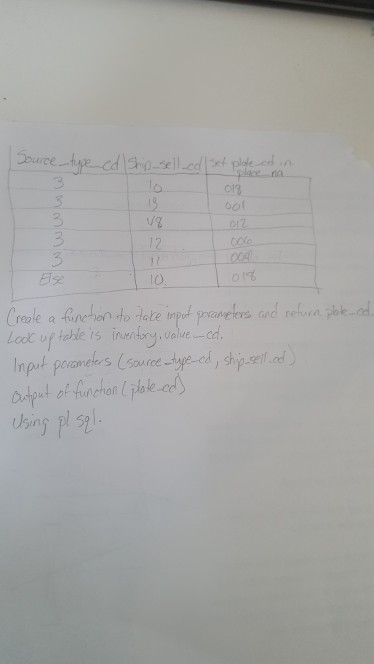 Source_type_cd | Ship_sell_cd | Set plate_cd in
place_na
3 | 10 | 018
3 | 13 | 001
3 | V8 | 012
3 | 12 | 006
3 | 11 | 009
Else | 10 | 018
Create a function to take input parameters and return plate_cd.
Look up table is inventory.value_cd.
Input parameters (source_type_cd, ship_sell_cd)
output of function (plate_cd)
Using pl sql.